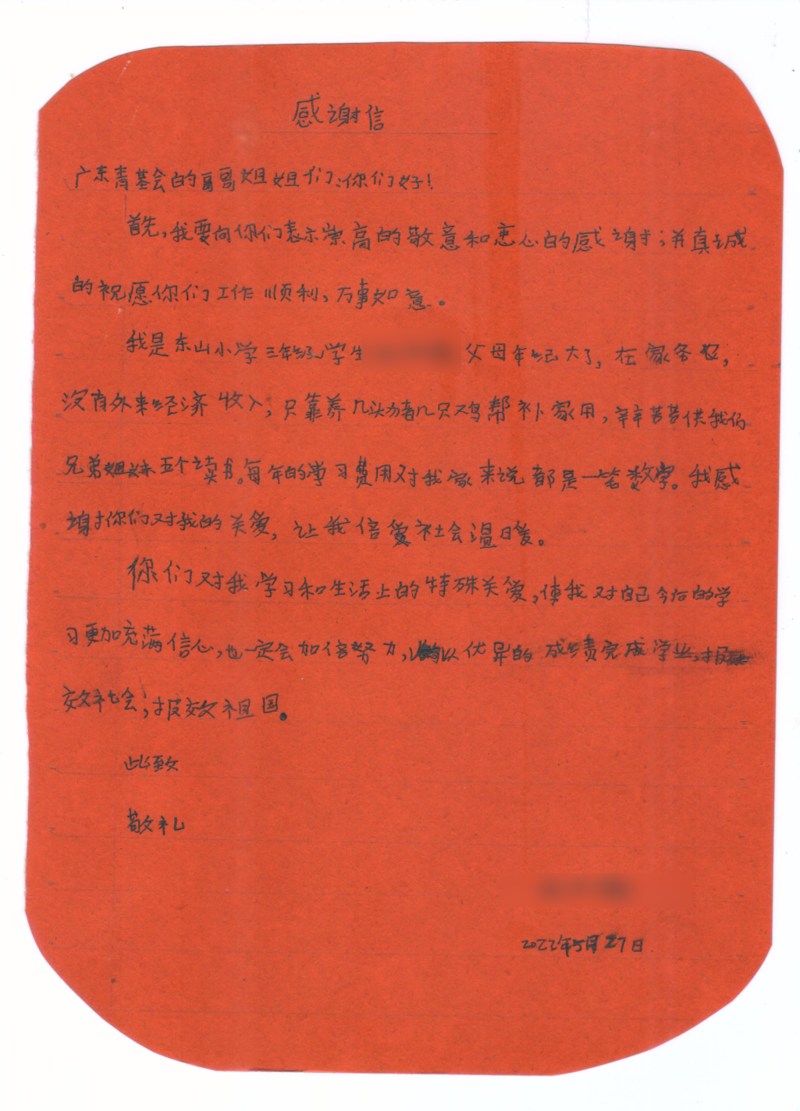 感谢信
广东青基会的哥哥姐姐们：你们好！
首先，我要向你们表示崇高的敬意和忠心的感谢；并真诚
的祝愿你们工作顺利，万事如意。
我是东山小学三年级学生 父母年纪大了，在家务农，
没有外来经济收入，只靠养几头猪几只鸡帮补家用，辛辛苦苦供我们
兄弟姐妹五个读书。每年的学习费用对我家来说都是一笔数字。我感
谢你们对我的关爱，让我倍爱社会温暖。
你们对我学习和生活上的特殊关爱，使我对自己今后的学
习更加充满信心，也一定会加倍努力，以优异的成绩完成学业，报
效社会，报效祖国。
此致
敬礼
2022年5月27日